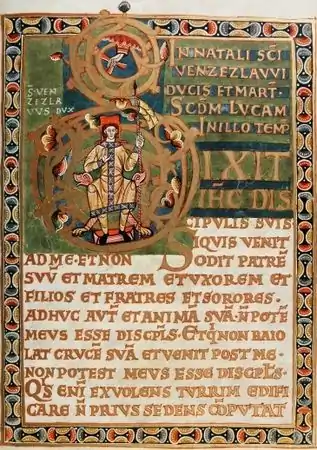 IN NATALI SC̄I
VENZEZLAVVI
DVCIS ET MART·
SC̄DM̄ LVCAM
IN ILLO TEMP̄
S·VEN
ZEZLA
VVS DVX
DIXIT
IHC̄ DIS
CIPVLIS SVIS
SIQVIS VENIT
AD ME·ET NON ODIT PATRĒ
SVV̄ ET MATREM ET VXOREM ET
FILIOS ET FRATRES ET SORORES·
ADHVC AVT̄ ET ANIMĀ SVĀ·N̄ POTĒ
MEVS ESSE DISCPLS̄· ET Q̄I NON BAIO
LAT CRVCĒ SVĀ ET VENIT POST ME·
NON POTEST MEVS ESSE DISCPLS̄·
QIS ENĪ EX VOLENS TVRRIM EDIFI
CARE N̄ PRIVS SEDENS CŌPVTAT